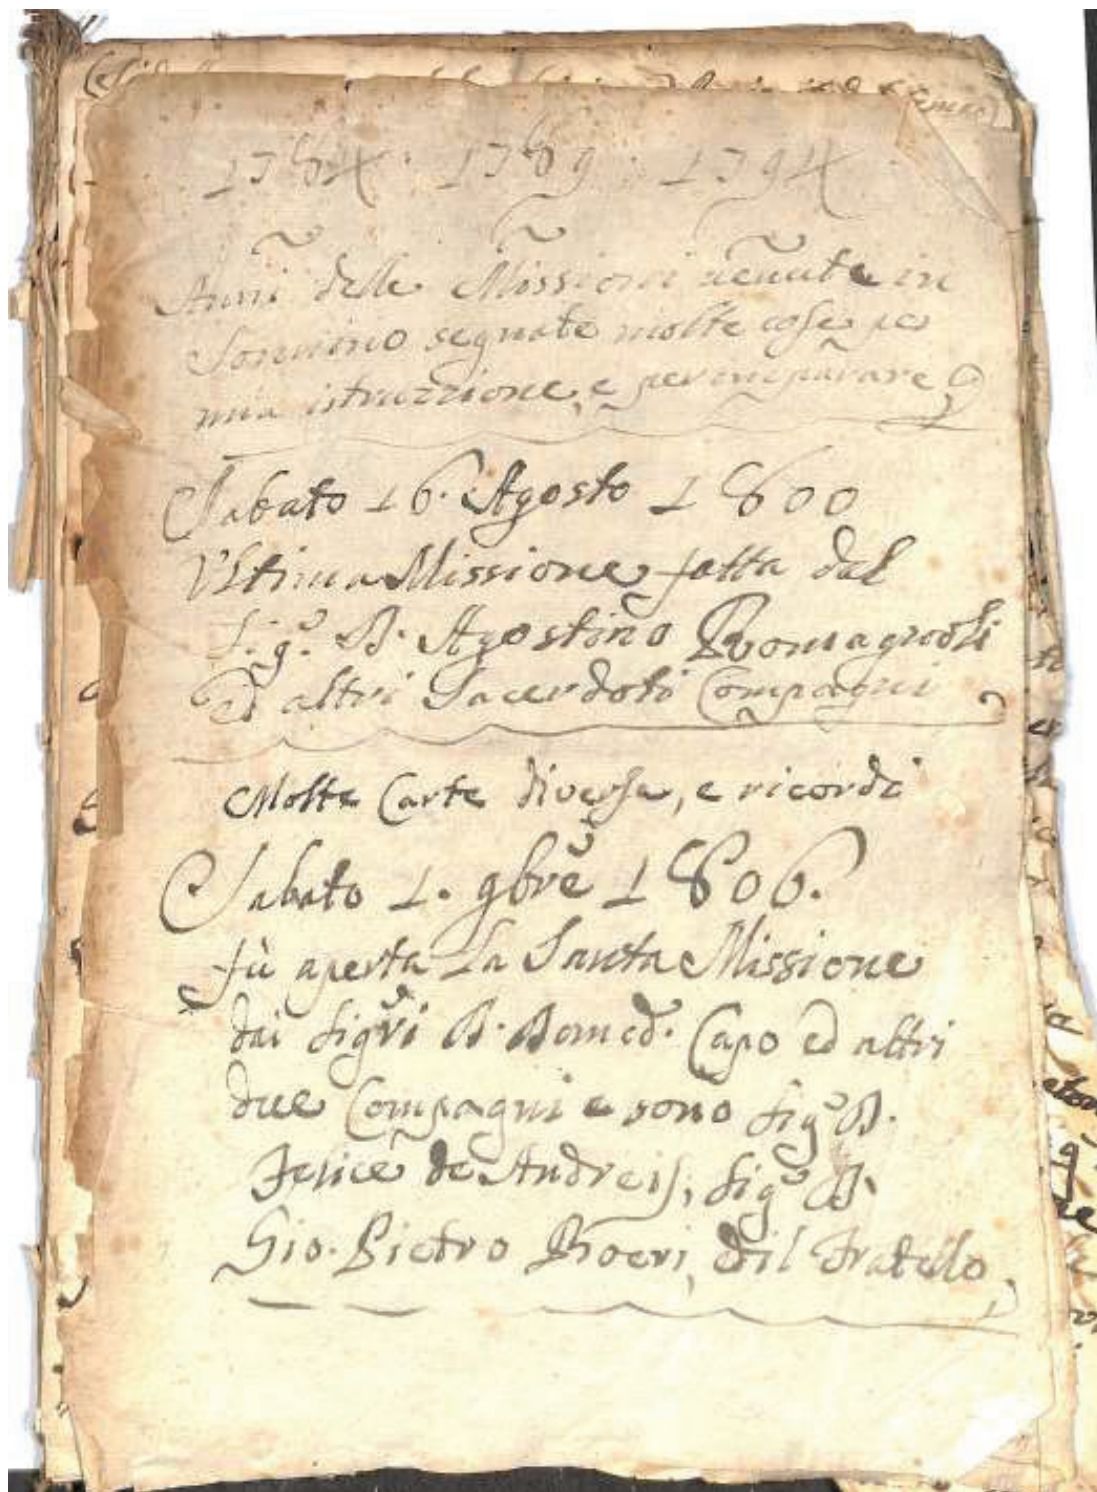 1784. 1789. 1794
Anni delle Missioni venute in
Sonnino segnate molte cose per
mia istruzzione, e per imparare
Sabato 16. Agosto 1800
Ultima Missione fatta dal
Sig.e D. Agostino Romagnoli
ed altri Sacerdoti Compagni
Molte Carte diverse, e ricordi
Sabato 1. 9bre 1806.
fù aperta La Santa Missione
dai Sigri D. Capo ed altri
due Compagni e sono Sig.e D.
Felice de Andreis, Sig.e D.
Gio. Pietro Boeri, ed il Fratello